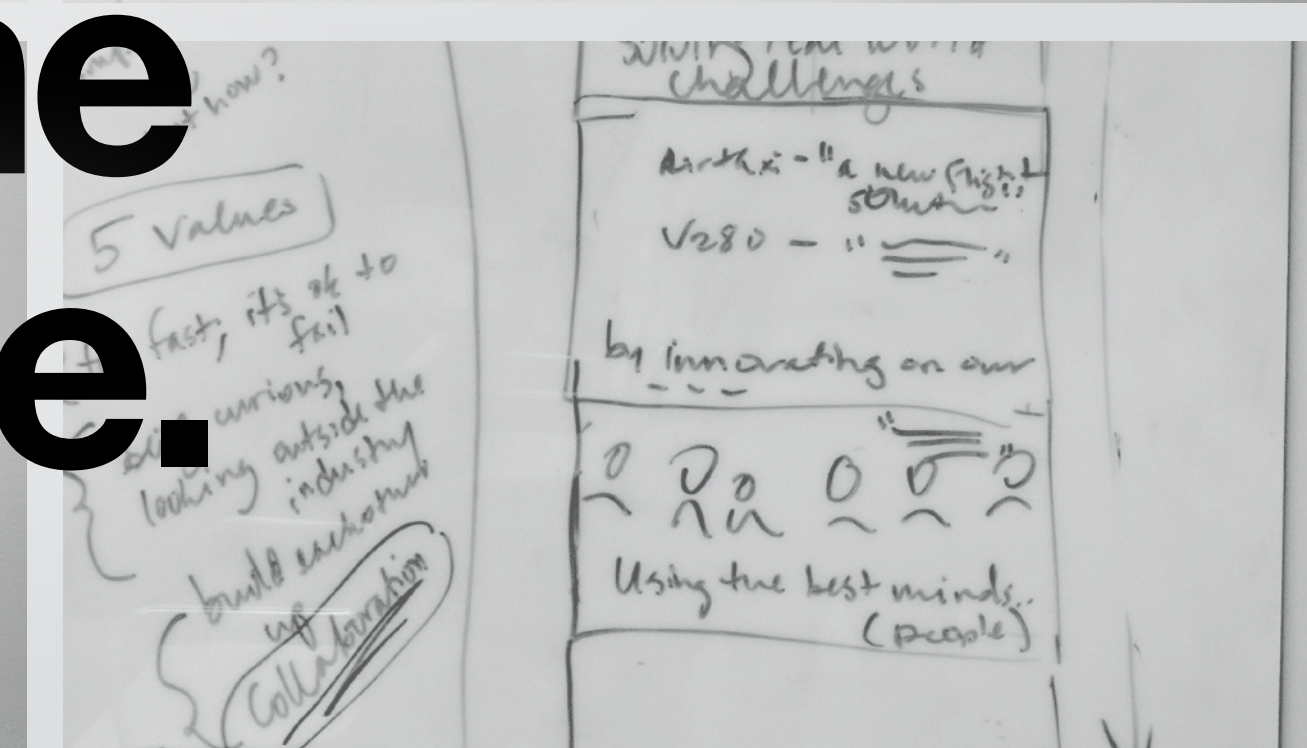 ne
e.
how?
5 values
fast, it's ok to
fail
curious,
looking outside the
industry
build eachother
up
Collaboration
solving real world
challenges
"a new flight
solution"
V280 - " "
by innovating on our
" "
Using the best minds..
(people)